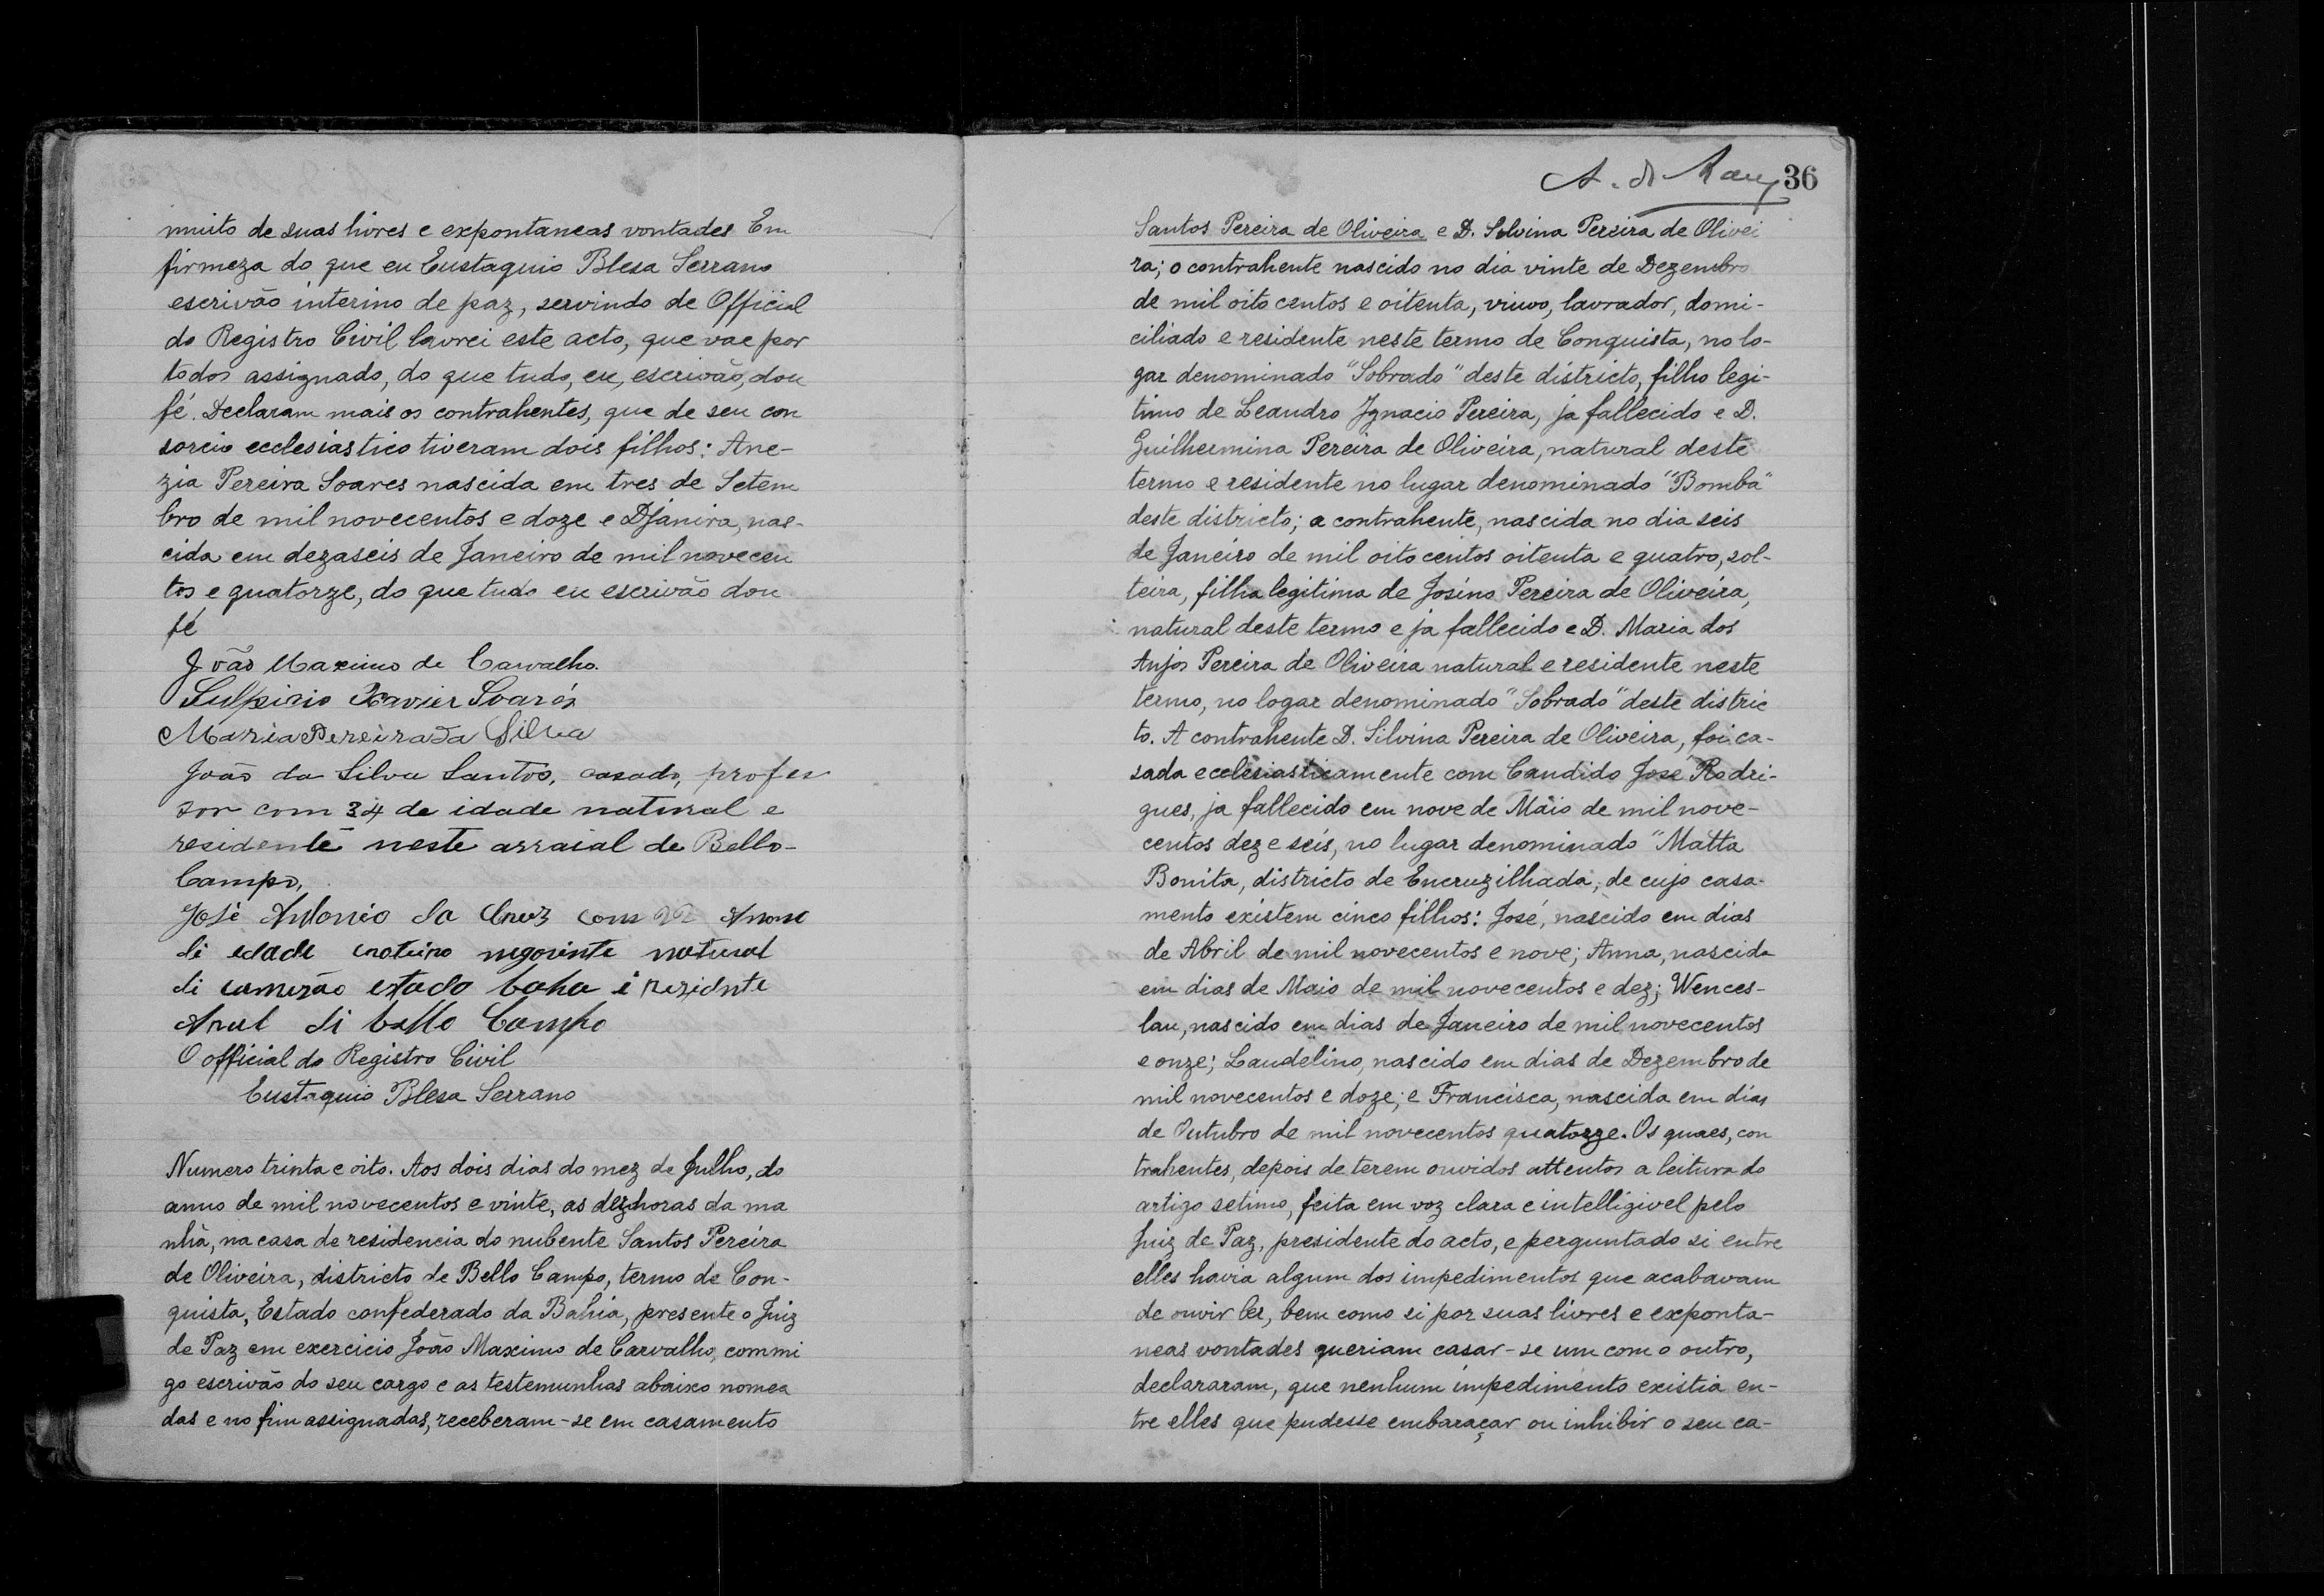 muito de suas livres e expontaneas vontades Em
firmeza do que eu Eustaquio Blesa Serrano
escrivão interino de paz, servindo de Official
do Registro Civil lavrei este acto, que vae por
todos assignado, do que tudo, eu, escrivão, dou
fé. Declaram mais os contrahentes, que de seu con
sorcio ecclesiastico tiveram dois filhos: Ane-
zia Pereira Soares nascida em tres de Setem
bro de mil novecentos e doze e Djanira, nas-
cida em dezaseis de Janeiro de mil novecen
tos e quatorze, do que tudo eu escrivão dou
fé
João Maximo de Carvalho.
Sulpicio Xavier Soares
Maria Pereira da Silva
João da Silva Santos, casado, profes
sor com 34 de idade natural e
residente neste arraial de Bello-
Campo,
José Antonio da Cruz com 22
di edade negosinte natural
di estado baha i rezidnte
di bello Campo
O official do Registro Civil
Eustaquio Blesa Serrano
Numero trinta e oito. Aos dois dias do mez de Julho, do
anno de mil novecentos e vinte, as dez horas da ma
nhà, na casa de residencia do nubente Santos Pereira
de Oliveira, districto de Bello Campo, termo de Con-
quista, Estado confederado da Bahia, presente o Juiz
de Paz em exercicio João Maximo de Carvalho, commi
go escrivão do seu cargo e as testemunhas abaixo nomea
das e no fim assignadas, receberam-se em casamento
36
Santos Pereira de Oliveira e D. Silvina Pereira de Olivei
ra; o contrahente nascido no dia vinte de Dezembro
de mil oito centos e oitenta, viuvo, lavrador, domi-
ciliado e residente neste termo de Conquista, no lo-
gar denominado "Sobrado" deste districto, filho legi-
timo de Leandro Ignacio Pereira, ja fallecido e D.
Guilhermina Pereira de Oliveira, natural deste
termo e residente no lugar denominado "Bomba"
deste districto; a contrahente, nascida no dia seis
de Janeiro de mil oito centos oitenta e quatro, sol-
teira, filha legitima de Josino Pereira de Oliveira,
natural deste termo e ja fallecido e D. Maria dos
Anjos Pereira de Oliveira natural e residente neste
termo, no logar denominado "Sobrado" deste distric
to. A contrahente D. Silvina Pereira de Oliveira, foi ca-
sada ecclesiasticamente com Candido José Rodri-
gues, ja fallecido em nove de Maio de mil nove-
centos dez e seis, no lugar denominado "Matta
Bonita, districto de Encruzilhada, de cujo casa-
mento existem cinco filhos: José, nascido em dias
de Abril de mil novecentos e nove; Anna, nascida
em dias de Maio de mil novecentos e dez; Wences-
lau, nascido em dias de Janeiro de mil novecentos
e onze; Laudelino, nascido em dias de Dezembro de
mil novecentos e doze; e Francisca, nascida em dias
de Outubro de mil novecentos quatorze. Os quaes, con
trahentes, depois de terem ouvidos attentos a leitura do
artigo setimo, feita em voz clara e intelligivel pelo
Juiz de Paz, presidente do acto, e perguntado si entre
elles havia algum dos impedimentos que acabavam
de ouvir ler, bem como si por suas livres e exponta-
neas vontades queriam casar-se um com o outro,
declararam, que nenhum impedimento existia en-
tre elles que pudesse embaraçar ou inhibir o seu ca-